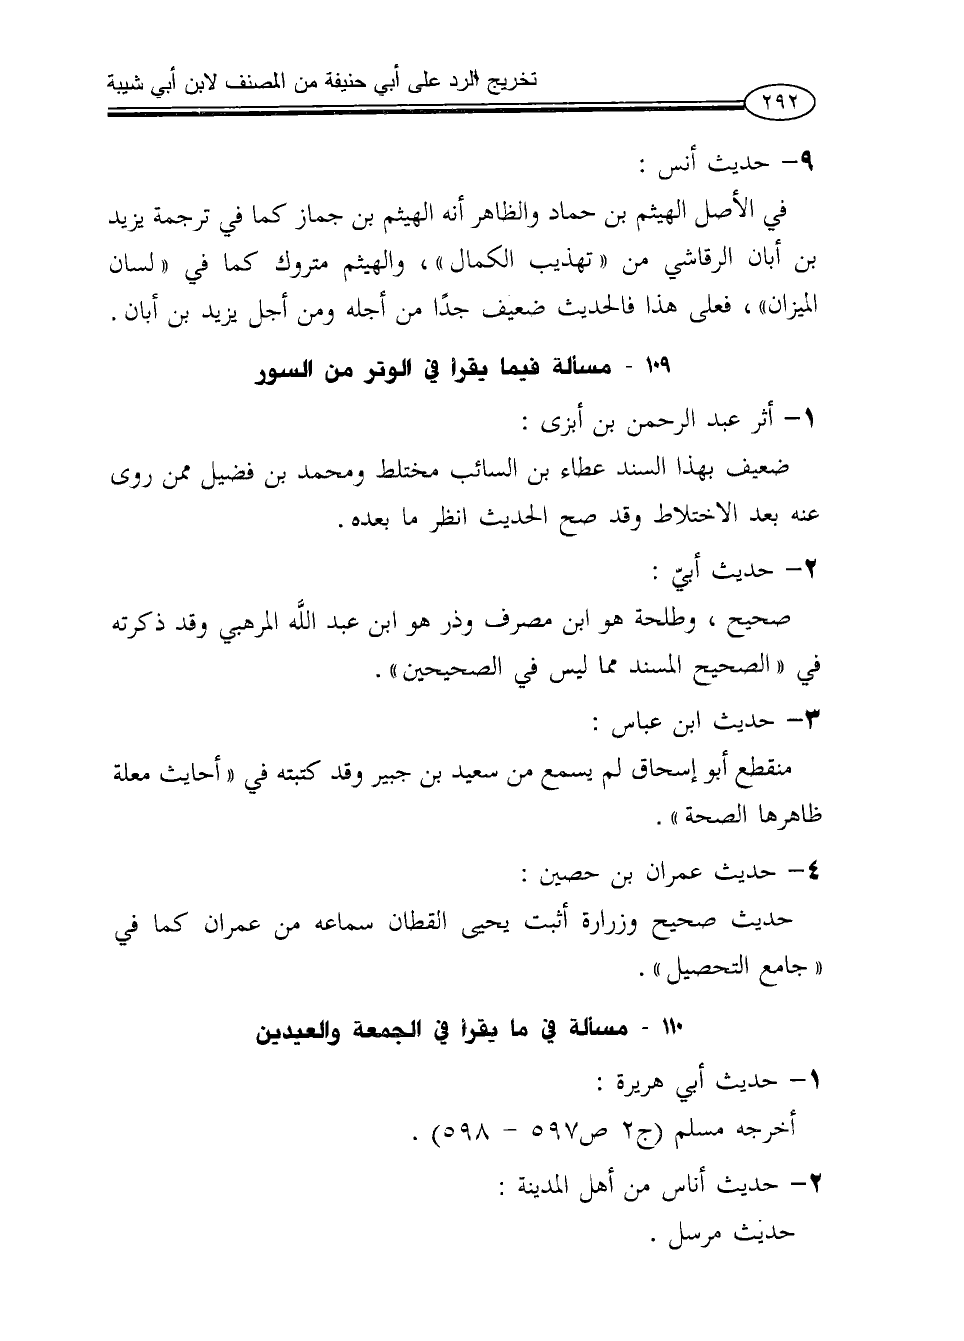 تخريج الرد على أبي حنيفة من المصنف لابن أبي شيبة
٢٩٢
٩- حديث أنس :
في الأصل الهيثم بن حماد والظاهر أنه الهيثم بن جماز كما في ترجمة يزيد
بن أبان الرقاشي من «تهذيب الكمال» ، والهيثم متروك كما في «لسان
الميزان» ، فعلى هذا فالحديث ضعيف جدًا من أجله ومن أجل يزيد بن أبان .
١٠٩ - مسألة فيما يقرأ في الوتر من السور
١- أثر عبد الرحمن بن أبزى :
ضعيف بهذا السند عطاء بن السائب مختلط ومحمد بن فضيل ممن روى
عنه بعد الاختلاط وقد صح الحديث انظر ما بعده .
٢- حديث أبيّ :
صحيح ، وطلحة هو ابن مصرف وذر هو ابن عبد اللَّه المرهبي وقد ذكرته
في «الصحيح المسند مما ليس في الصحيحين» .
٣- حديث ابن عباس :
منقطع أبو إسحاق لم يسمع من سعيد بن جبير وقد كتبته في «أحايث معلة
ظاهرها الصحة» .
٤- حديث عمران بن حصين :
حديث صحيح وزرارة أثبت يحيى القطان سماعه من عمران كما في
«جامع التحصيل» .
١١٠ - مسألة في ما يقرأ في الجمعة والعيدين
١- حديث أبي هريرة :
أخرجه مسلم (ج٢ ص٥٩٧ - ٥٩٨) .
٢- حديث أناس من أهل المدينة :
حديث مرسل .